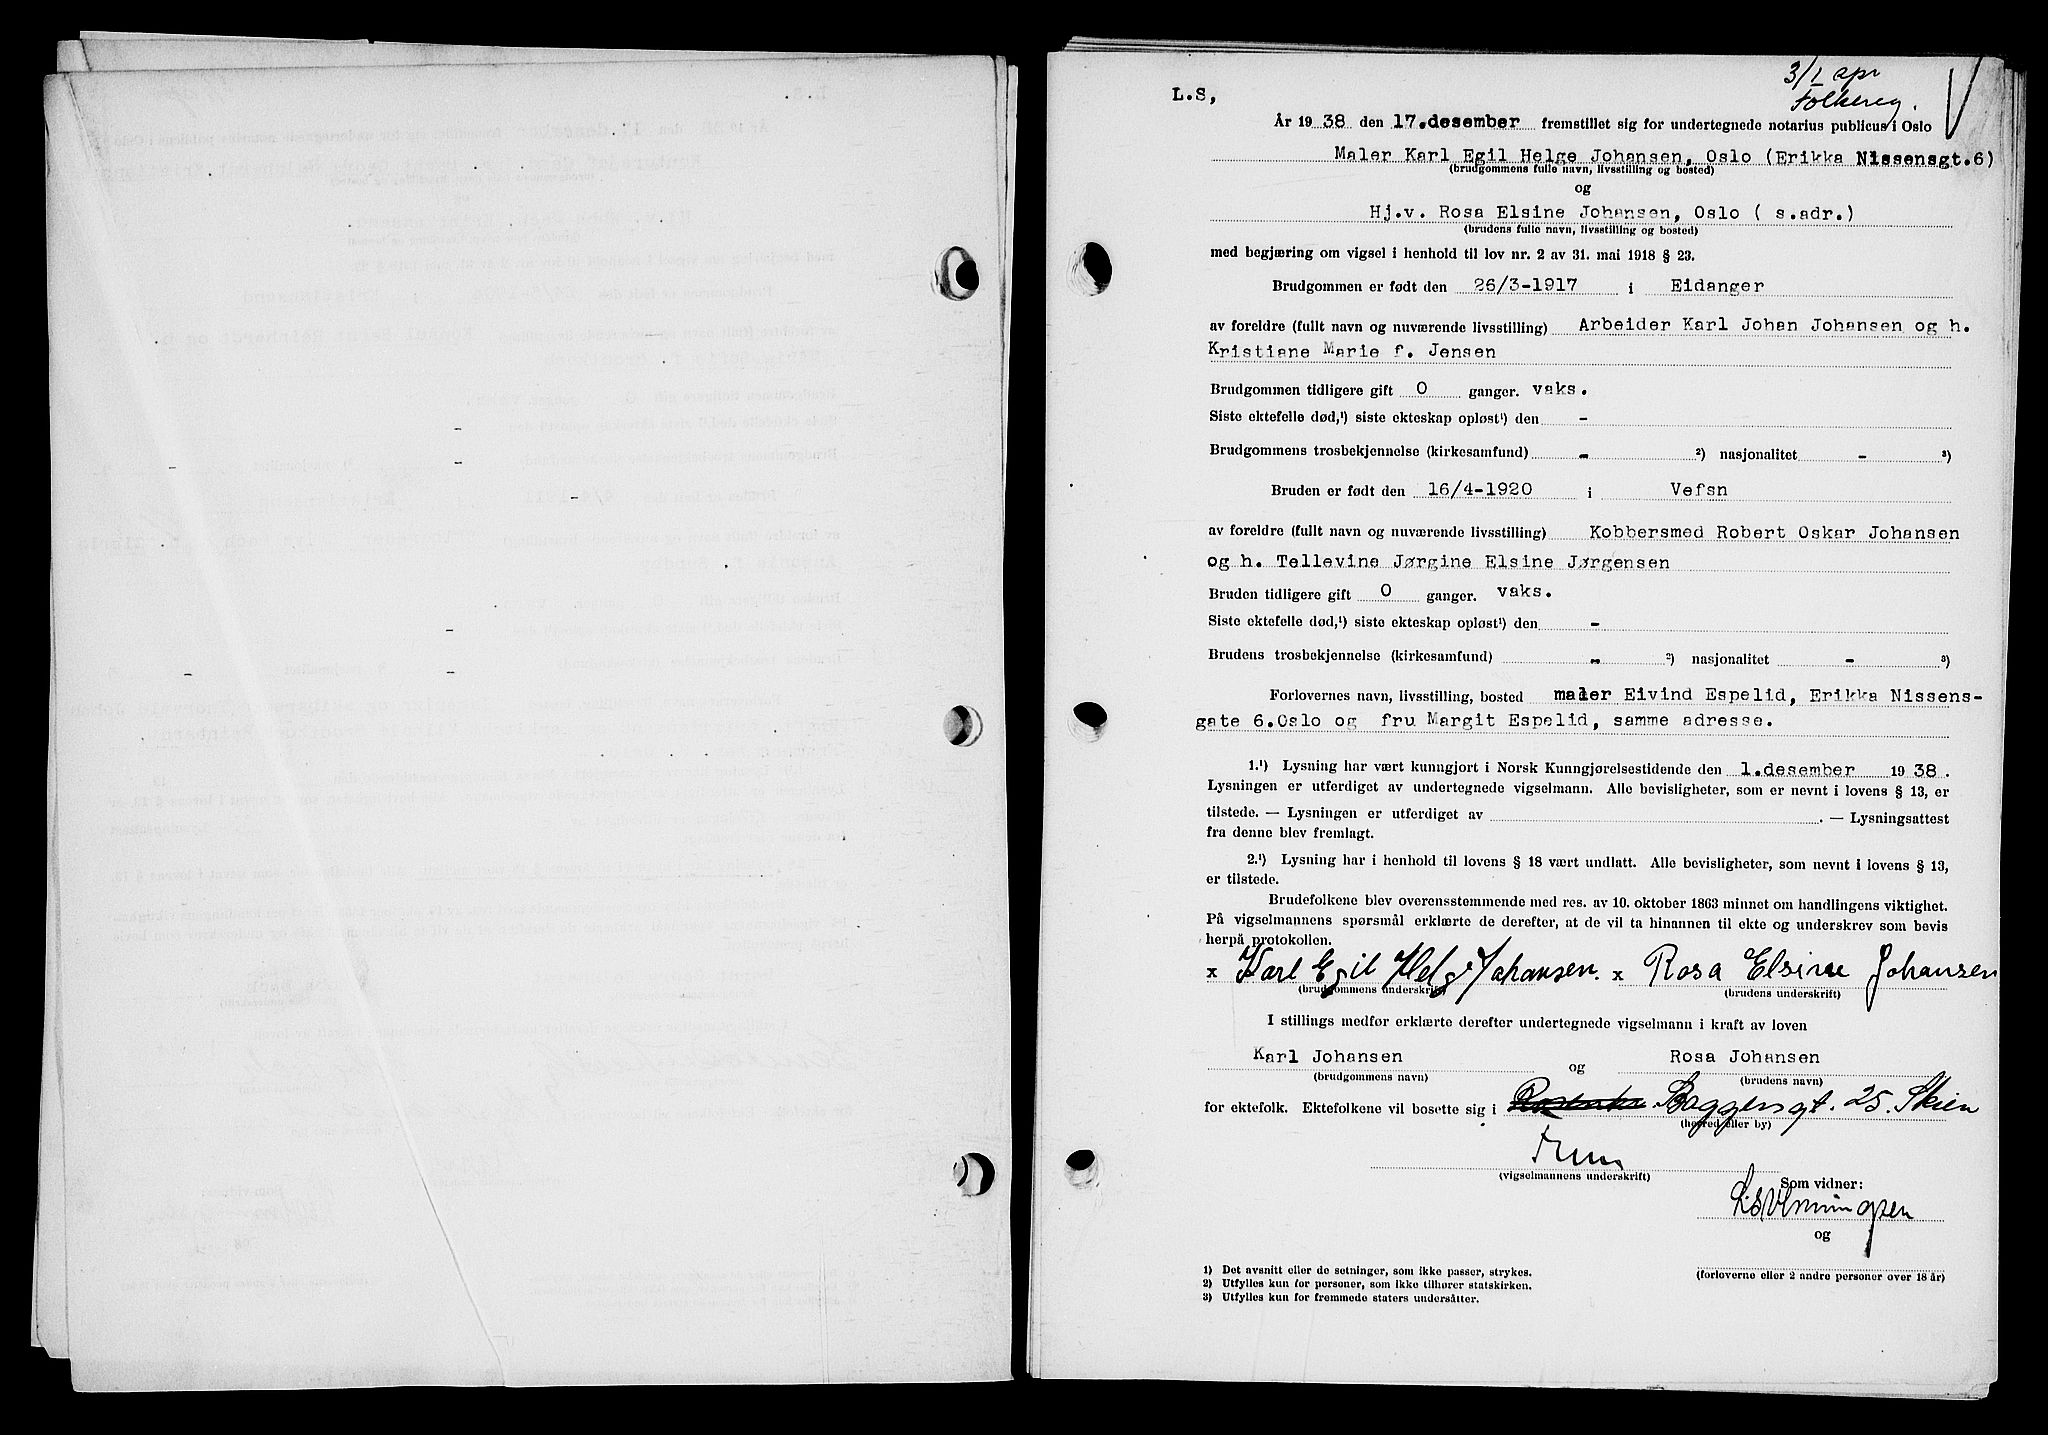 3/1 spr
Folkereg.
L.S,
År 1938 den 17.desember fremstillet sig for undertegnede notarius publicus i Oslo
Maler Karl Egil Helge Johansen, Oslo (Erikka Nissensgt.6)
(brudgommens fulle navn, livsstilling og bosted)
og
Hj.v. Rosa Elsine Johansen, Oslo ( s.adr.)
(brudens fulle navn, livsstilling og bosted)
med begjæring om vigsel i henhold til lov nr. 2 av 31. mai 1918 § 23.
Brudgommen er født den 26/3-1917 i Eidanger
av foreldre (fullt navn og nuværende livsstilling) Arbeider Karl Johan Johansen og h.
Kristiane Marie f. Jensen
Brudgommen tidligere gift 0 ganger. vaks.
Siste ektefelle død,¹) siste ekteskap opløst¹) den -
Brudgommens trosbekjennelse (kirkesamfund) - ²) nasjonalitet - ³)
Bruden er født den 16/4-1920 i Vefsn
av foreldre (fullt navn og nuværende livsstilling) Kobbersmed Robert Oskar Johansen
og h. Tellevine Jørgine Elsine Jørgensen
Bruden tidligere gift 0 ganger. vaks.
Siste ektefelle død,¹) siste ekteskap opløst¹) den -
Brudens trosbekjennelse (kirkesamfund) - ²) nasjonalitet - ³)
Forlovernes navn, livsstilling, bosted maler Eivind Espelid, Erikka Nissens-
gate 6.Oslo og fru Margit Espelid, samme adresse.
1.¹) Lysning har vært kunngjort i Norsk Kunngjørelsestidende den 1.desember 1938.
Lysningen er utferdiget av undertegnede vigselmann. Alle bevisligheter, som er nevnt i lovens § 13, er
tilstede. — Lysningen er utferdiget av . — Lysningsattest
fra denne blev fremlagt.
2.¹) Lysning har i henhold til lovens § 18 vært undlatt. Alle bevisligheter, som nevnt i lovens § 13,
er tilstede.
Brudefolkene blev overensstemmende med res. av 10. oktober 1863 minnet om handlingens viktighet.
På vigselmannens spørsmål erklærte de derefter, at de vil ta hinannen til ekte og underskrev som bevis
herpå protokollen.
x Karl Egil Helge Johansen. x Rosa Elsine Johansen
(brudgommens underskrift) (brudens underskrift)
I stillings medfør erklærte derefter undertegnede vigselmann i kraft av loven
Karl Johansen og Rosa Johansen
(brudgommens navn) (brudens navn)
for ektefolk. Ektefolkene vil bosette sig i Baggensgt. 25. Skien
(herred eller by)
(vigselmannens underskrift)
Som vidner:
og
(forloverne eller 2 andre personer over 18 år)
1) Det avsnitt eller de setninger, som ikke passer, strykes.
2) Utfylles kun for personer, som ikke tilhører statskirken.
3) Utfylles kun for fremmede staters undersåtter.